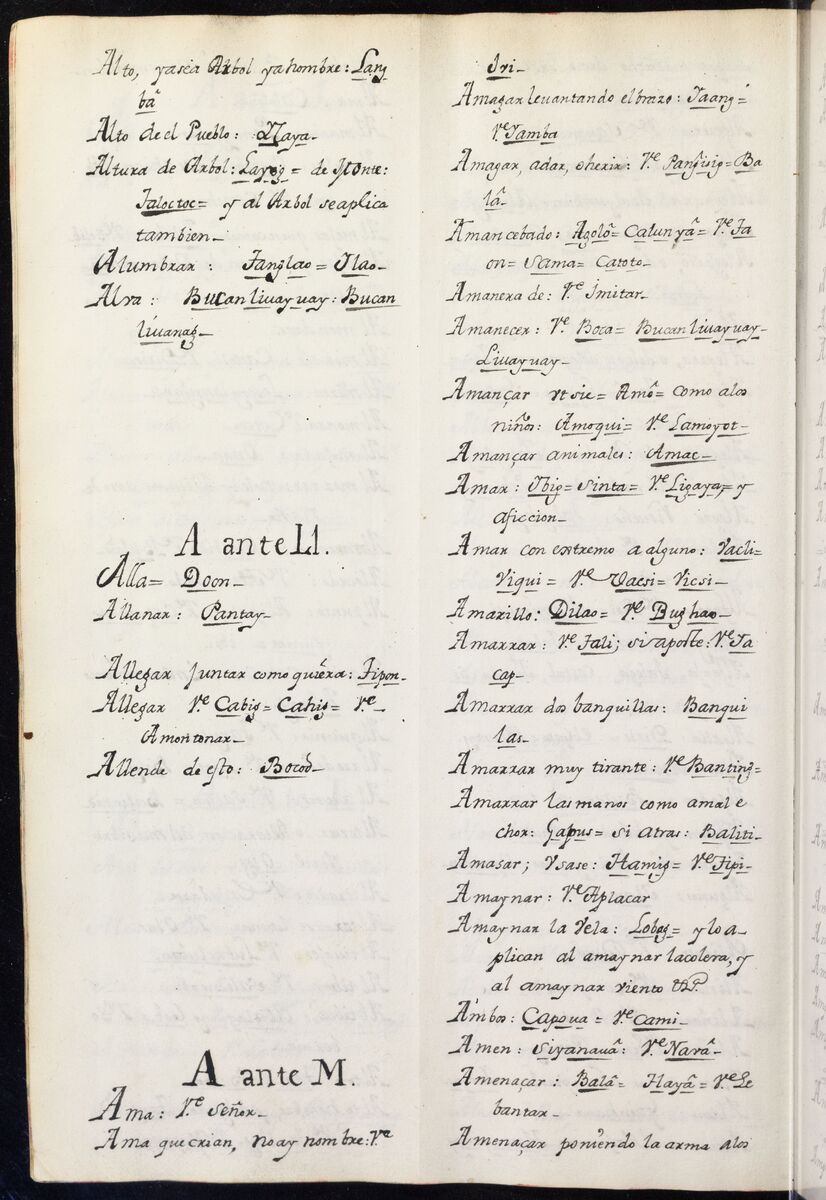 Alto, ya sea Arbol ya hombre: Lang
bâ
Alto de el Pueblo: Naya
Altura de Arbol: Layog = de Monte:
Taloctoc = y al Arbol se aplica
tambien
Alumbrar: Tanglao = Ylao
Alva: Bucan livayvay: Bucan
livanag
A ante Ll.
Alla = Doon
Allanar: Pantay
Allegar juntar como quiera: Tipon
Allegar Vᵉ Cabig = Cahig = Vᵉ
Amontonar
Allende de esto: Bocod
A ante M.
Ama: Vᵉ señor
Ama que crian, no ay nombre: Vᵃ
Yvi
Amagar levantando el brazo: Yaang =
Vᵉ Yamba
Amagar, a dar, o herir: Vᵉ Pangisig = Ba
lâ
Amancebado: Agolô = Calunyâ = Vᵉ Ta
on = Sama = Catoto
Amanera de: Vᵉ Imitar
Amanecer: Vᵉ Boca = Bucan livayvay
Livayvay
Amançar vt sic = Amô = como a los
niños: Amoqui = Vᵉ Lamoyot
Amançar animales: Amac
Amar: Ybig = Sinta = Vᵉ Ligaya, = y
aficcion
Amar con extremo a alguno: Vacli =
Viqui = Vᵉ Vacsi = Vicsi
Amarillo: Dilao = Vᵉ Bughao
Amarrar: Vᵉ Tali; si a poste: Vᵉ Ya
cap
Amarrar dos banquillas: Banqui
las
Amarrar muy tirante: Vᵉ Banting =
Amarrar las manos como a mal e
chor: Gapus = si atras: Baliti
Amasar; Vsase: Hamig = Vᵉ Tipi
Amaynar: Vᵉ Aplacar
Amaynar la Vela: Lobag = y lo a
plican al amaynar la colera, y
al amaynar viento
Ambos: Capova = Vᵉ Cami
Amen: Siyanavâ: Vᵉ Narâ
Amenaçar: Balâ = Hayâ = Vᵉ Le
bantar
Amenaçar poniendo la arma a los